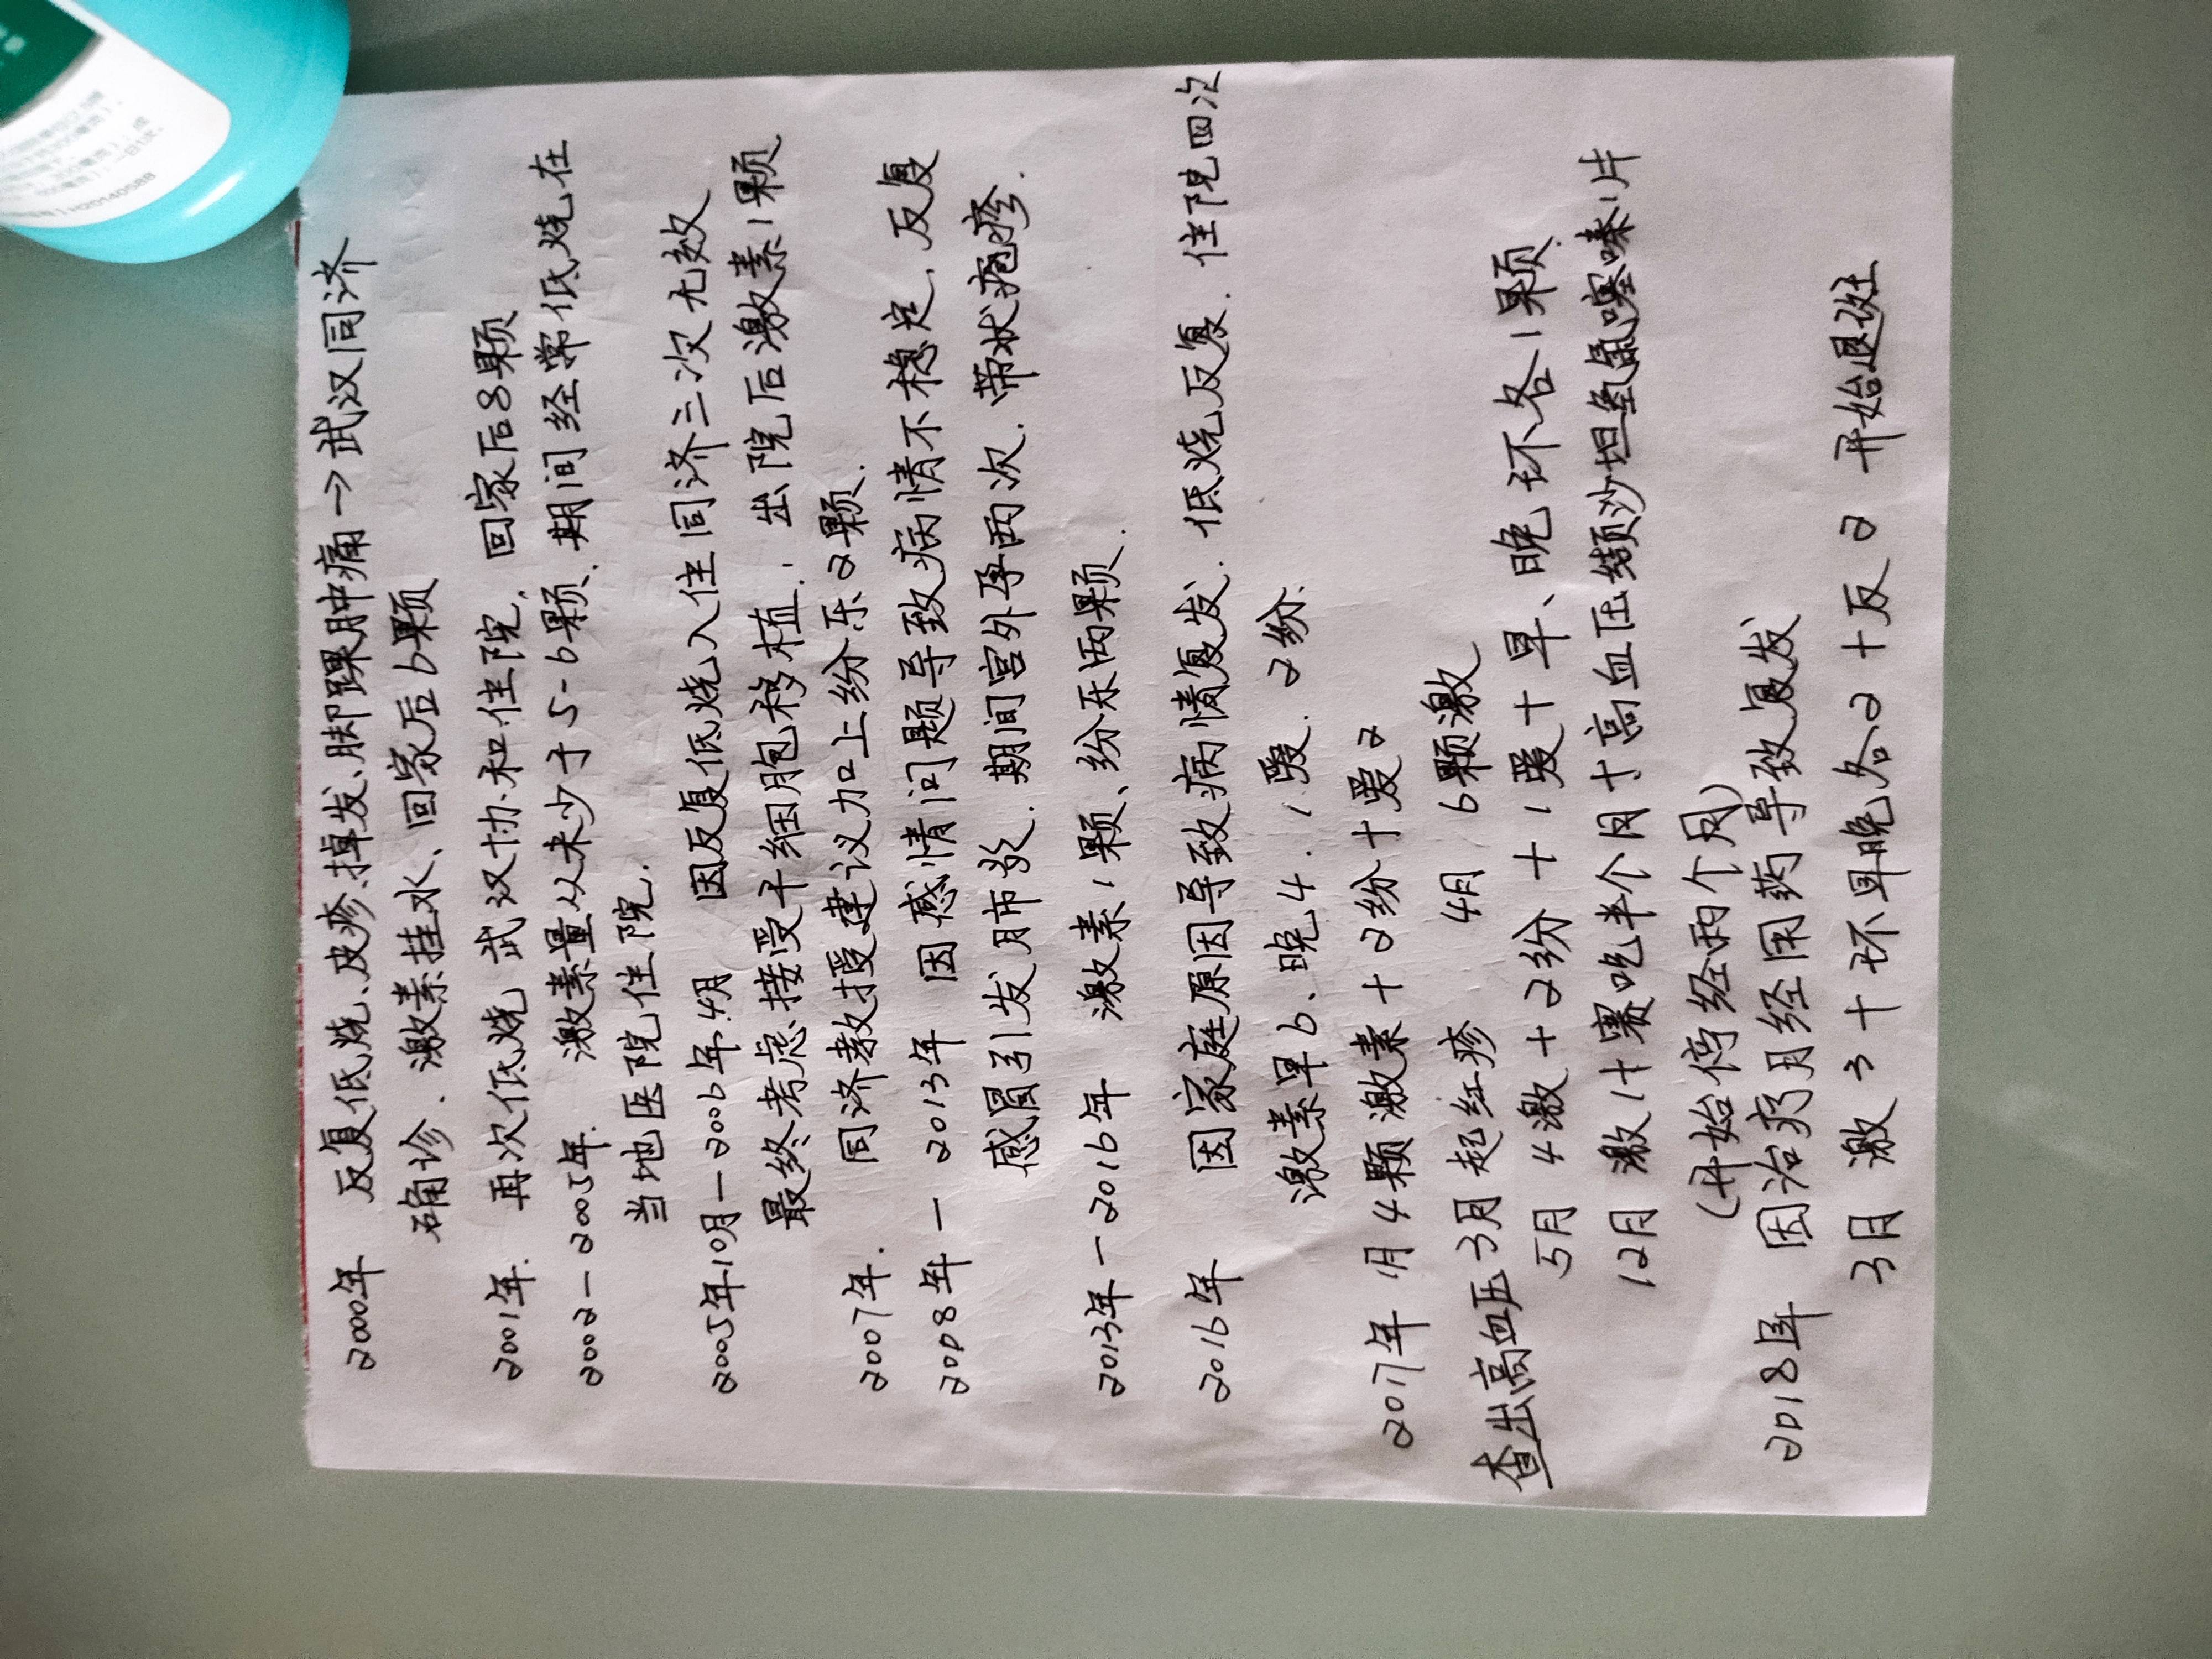 2000年 反复低烧、皮疹、掉发、脚踝肿痛→武汉同济
确诊.激素挂水、回家后6颗
2001年. 再次低烧 武汉协和住院.回家后8颗
2002-2005年. 激素量从未少于5-6颗.期间经常低烧在
当地医院住院.
2005年10月-2006年4月 因反复低烧入住同济三次无效
最终考虑接受干细胞移植.出院后激素1颗
2007年. 同济教授建议加上纷乐2颗.
2008年-2013年 因感情问题导致病情不稳定.反复
感冒引发肺炎.期间宫外孕两次.带状疱疹.
2013年-2016年 激素1颗、纷乐两颗.
2016年 因家庭原因导致病情复发.低烧反复.住院四次
激素早6、晚4.1爱.2纷.
2017年 1月4颗激素+2纷+爱2
查出高血压3月起红疹 4月 6颗激
5月 4激+2纷+1爱+早、晚环各1颗.
12月 激1+赛吃半个月+高血压缬沙坦氢氯噻嗪1片
(开始停经两个月)
2018年 因治疗月经用药导致复发
3月 激3+环早晚各2+反2 开始退斑
H20140588